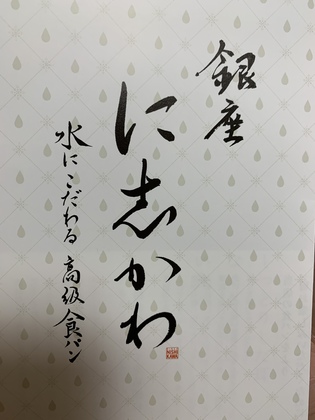 銀座
に志かわ
NISHI
KAWA
水にこだわる 高級食パン